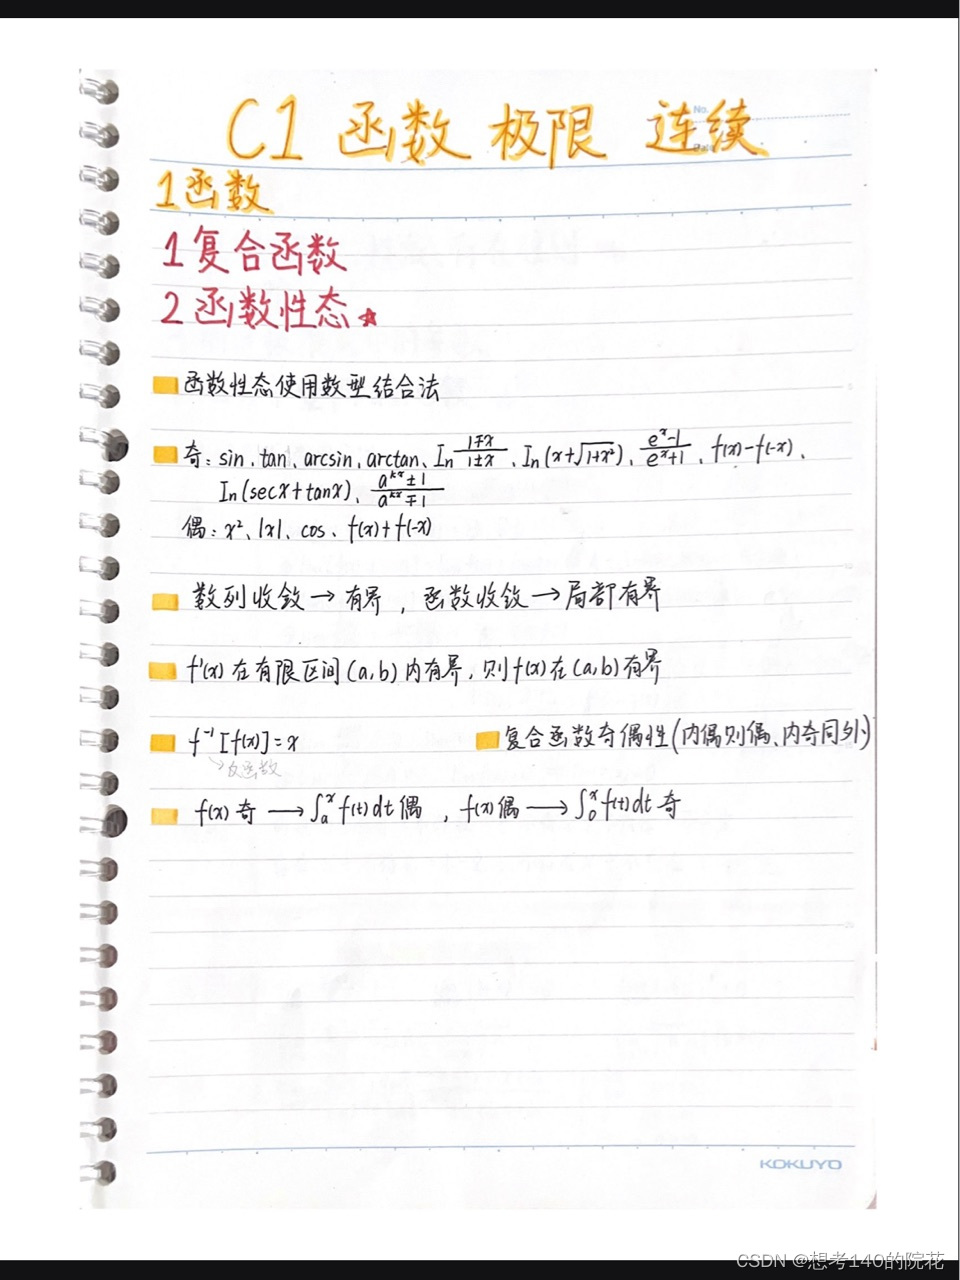 No.
Date
C1 函数 极限 连续
1函数
1复合函数
2函数性态☆
函数性态使用数型结合法
奇：sin、tan、arcsin、arctan、In (1∓x)/(1±x)、In(x+√(1+x²))、(eˣ-1)/(eˣ+1)、f(x)-f(-x)、
In(secx+tanx)、(aᵏˣ±1)/(aᵏˣ∓1)
偶：x²、|x|、cos、f(x)+f(-x)
数列收敛→有界，函数收敛→局部有界
f'(x)在有限区间(a,b)内有界，则f(x)在(a,b)有界
f⁻¹[f(x)]=x
→反函数
复合函数奇偶性(内偶则偶、内奇同外)
f(x)奇→∫ₐˣf(t)dt偶，f(x)偶→∫₀ˣf(t)dt奇
KOKUYO
CSDN @想考140的院花